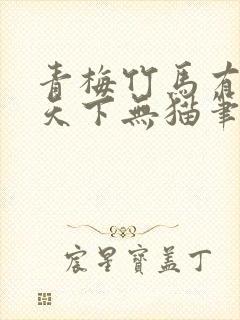 青梅竹馬有
天下無貓筆
宸星寶盖丁